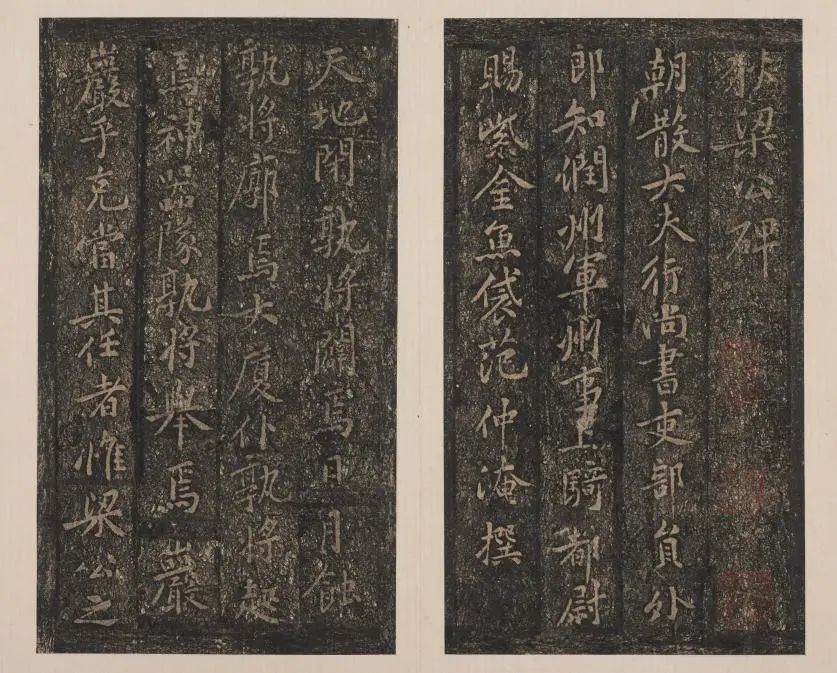 狄梁公碑
朝散大夫行尚書吏部員外
郎知潤州軍州事上騎都尉
賜紫金魚袋范仲淹撰
天地閉孰將闢焉日月蝕
孰將廓焉大廈仆孰將起
焉神器墜孰將舉焉巖
巖乎克當其任者惟梁公之